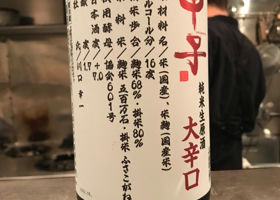 甲子
純米生原酒
大辛口
原材料名/米(国産)、米麹(国産米)
アルコール分/16度
精米歩合/麹米68%・掛米80%
原料米/麹米 五百万石・掛米 ふさこがね
使用酵母/協会601号
日本酒度/+7.0
酸度/1.7
杜氏/川口幸一